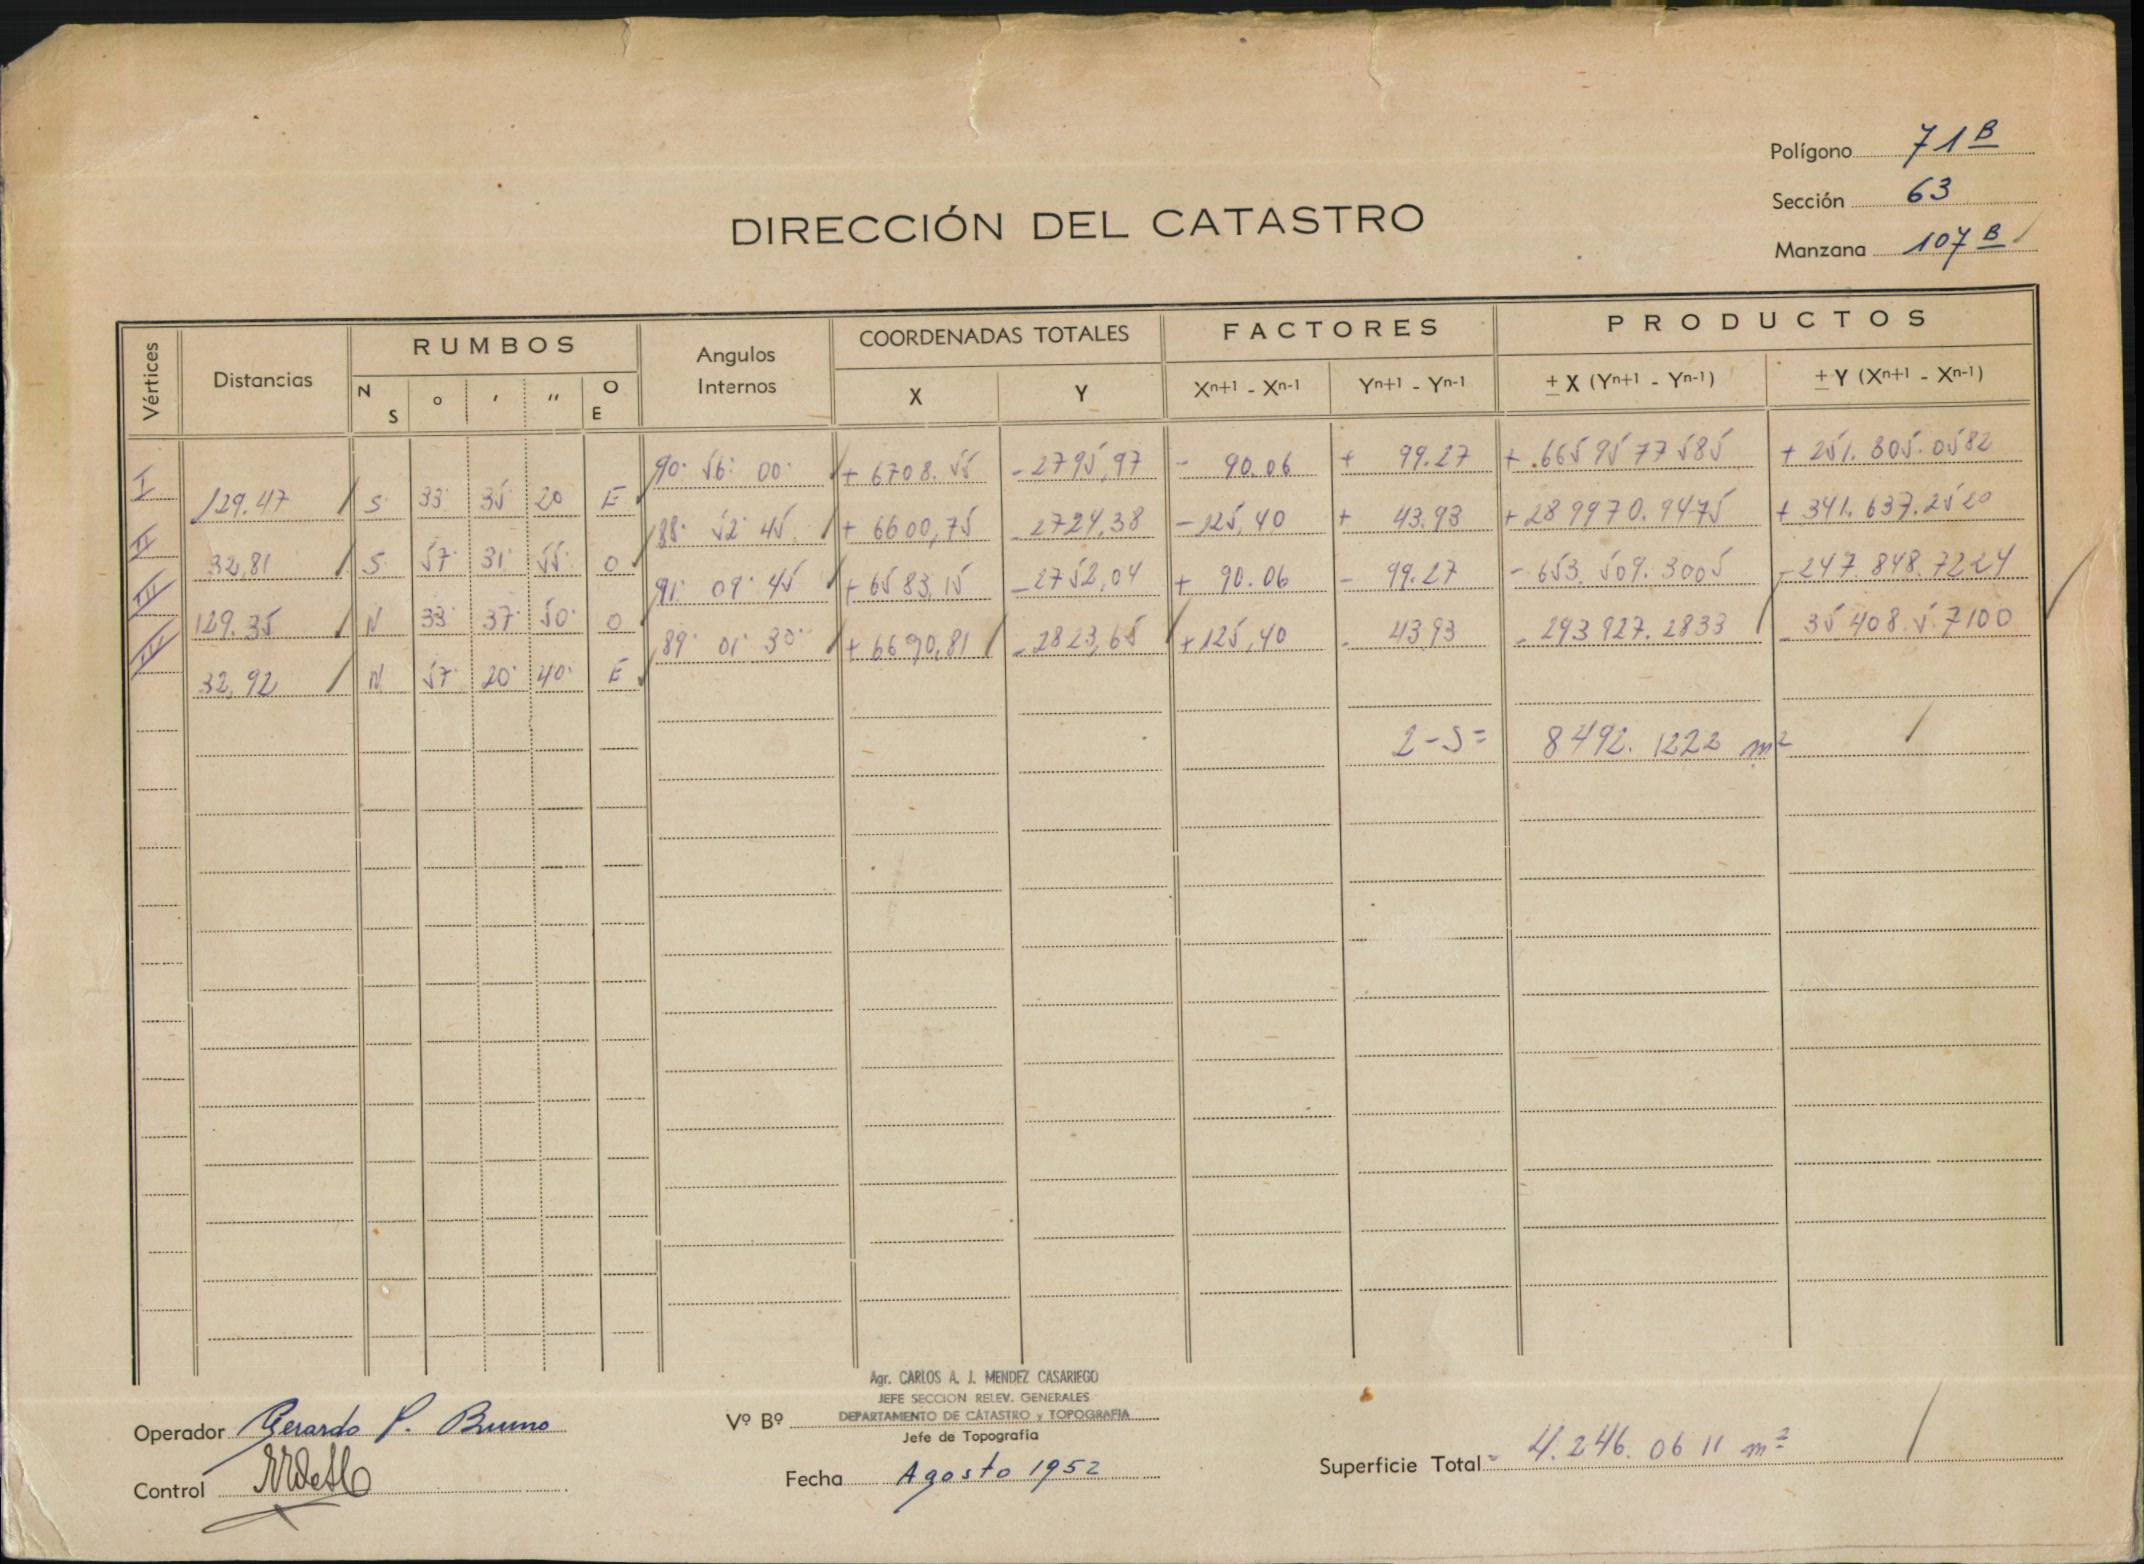 Polígono 71 B
Sección 63
Manzana 107 B
DIRECCIÓN DEL CATASTRO
Vértices Distancias RUMBOS Angulos Internos COORDENADAS TOTALES FACTORES PRODUCTOS
N S ° ' " O E X Y Xn+1 - Xn-1 Yn+1 - Yn-1 ± X (Yn+1 - Yn-1) ± Y (Xn+1 - Xn-1)
I 90° 56' 00" + 6708.55 - 2795,97 - 90.06 + 99.27 + 665957 7585 + 251.805.0582
129.47 S 33° 35' 20 E
II 88° 52' 45 + 6600,75 - 2724,38 - 125,40 + 43.93 + 289970.9475 + 341.637.2520
32,81 S 57° 31' 55" O
III 91° 09' 45 + 6583,15 - 2752,04 + 90.06 - 99.27 - 653.509.3005 - 247.848.7224
129.35 N 33° 37' 50" O
IIII 89° 01' 30" + 6690,81 - 2823,65 + 125,40 - 43.93 - 293927.2833 - 35408.5.7100
32,92 N 57° 20' 40" E
2-S= 8492.1222 m²
Agr. CARLOS A. J. MENDEZ CASARIEGO
JEFE SECCION RELEV. GENERALES
DEPARTAMENTO DE CATASTRO y TOPOGRAFIA
Operador Gerardo P. Bruno
Vº Bº
Jefe de Topografía
Control
Fecha Agosto 1952
Superficie Total = 4.246.0611 m²